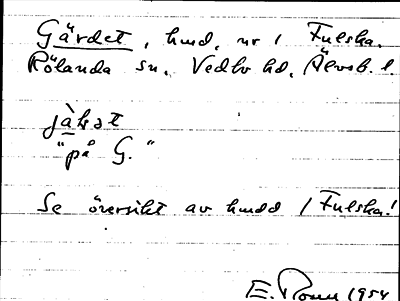 Gärdet, hmd, nr 1 Fulska.
Rölanda sn. Vedbo hd, Älvsb. l.
"på G."
Se översikt av hmdd / Fulska!
E. 1954